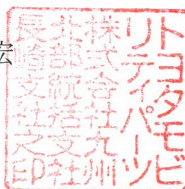 トヨタモビ
リティパーツ
株式会社九州
北部統括支社
長崎支社之印